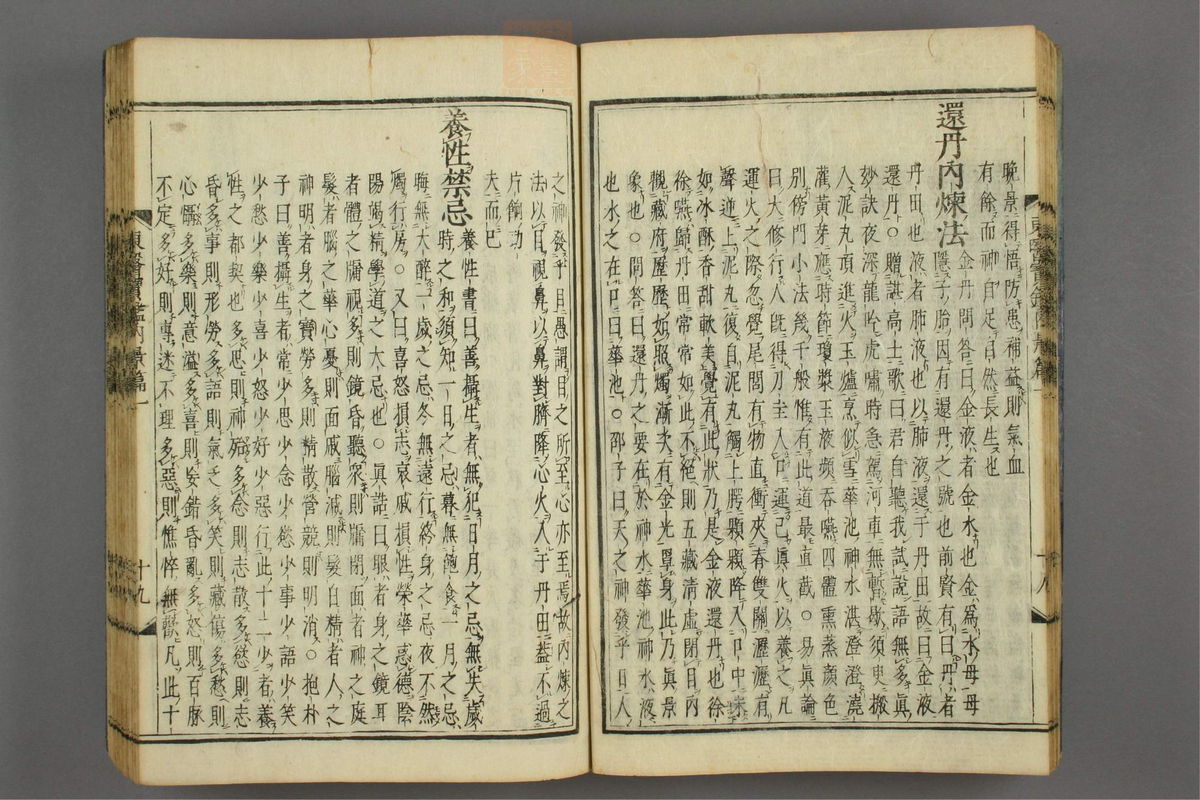 晚景得悟防患補益則氣血
有餘而神自足自然長生也
還丹內煉法
金丹問答曰金液者金水也金爲水母母
隱子胎因有還丹之號也前賢有曰丹者
丹田也液者肺液也以肺液還于丹田故曰金液
還丹○贈諶高士歌曰君自聽我試說語無多眞
妙訣夜深龍吟虎嘯時急駕河車無暫歇須臾搬
人泥丸頂進火玉爐烹似雪華池神水湛澄澄澆
灌黃芽應時節瓊漿玉液頻吞嚥四體熏蒸顏色
別傍門小法幾千般惟有此道最直截○易眞論
曰大修行人旣得刀圭入口運己眞火以養之凡
運火之際忽覺尾閭有物直衝夾脊雙關瀝瀝有
聲逆上泥丸復自泥丸觸上腭顆顆降入口中味
如冰酥香甜軟美覺有此狀乃是金液還丹也徐
徐嚥歸丹田常常如此不絕則五藏清虛閉目內
觀藏府歷歷如照燭漸次有金光罩身此乃眞景
象也○問答曰還丹之要在於神水華池神水液
也水之在口曰華池○邵子曰天之神發乎日人
之神發乎目愚謂目之所至心亦至焉故內煉之
法以目視鼻以鼻對臍降心火入于丹田蓋不過
片餉功
夫而已
養性禁忌
養性書曰善攝生者無犯日月之忌無失歲
時之和須知一日之忌暮無飽食一月之忌
晦無大醉一歲之忌冬無遠行終身之忌夜不然
燭行房○又曰喜怒損志哀戚損性榮華惑德陰
陽竭精學道之大忌也○眞誥曰眼者身之鏡耳
者體之牖視多則鏡昏聽衆則牖閉面者神之庭
髮者腦之華心憂則面戚腦減則髮白精者人之
神明者身之寶勞多則精散營競則明消○抱朴
子曰善攝生者常少思少念少慾少事少語少笑
少愁少樂少喜少怒少好少惡行此十二少者養
性之都契也多思則神殆多念則志散多慾則志
昏多事則形勞多語則氣乏多笑則藏傷多愁則
心懾多樂則意溢多喜則妄錯昏亂多怒則百脉
不定多好則專迷不理多惡則憔悴無懽凡此十
東醫寶鑑內景篇一
十九
東醫寶鑑內景篇
十八